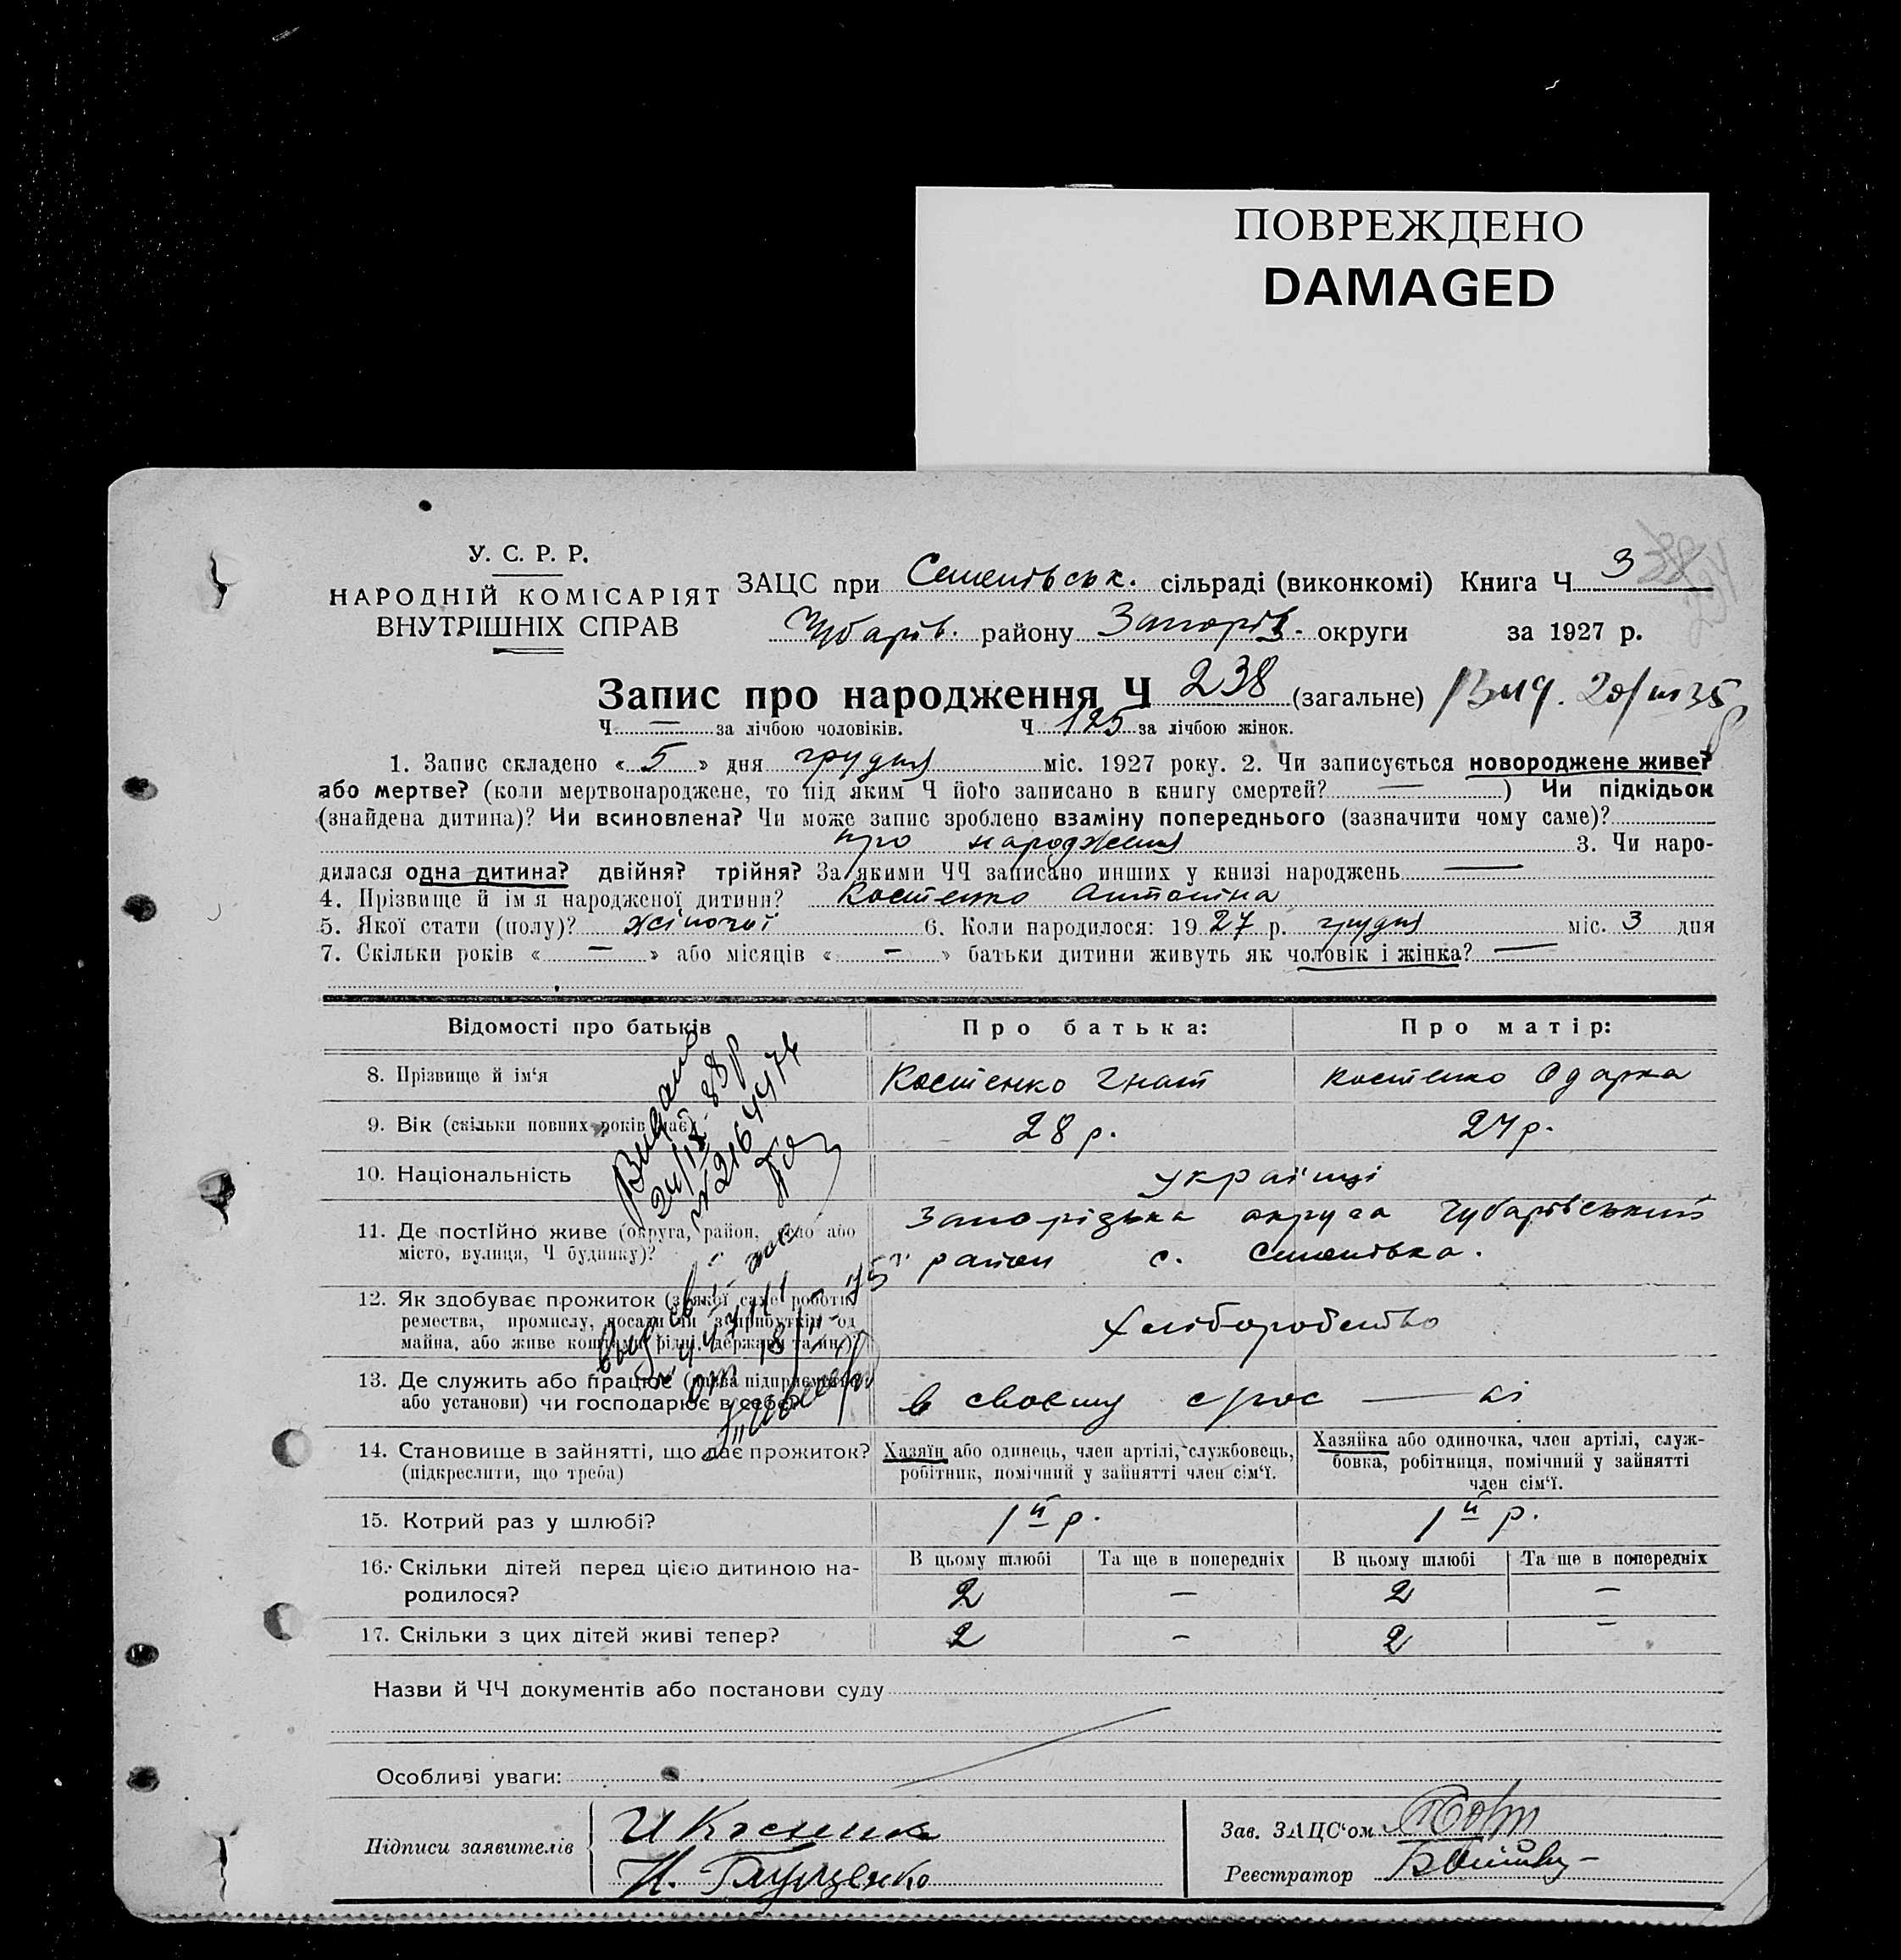 ПОВРЕЖДЕНО
DAMAGED
У. С. Р. Р.
НАРОДНІЙ КОМІСАРІЯТ
ВНУТРІШНІХ СПРАВ
ЗАЦС при Семенівськ. сільраді (виконкомі) Книга Ч 3
Чубарів. району Запоріз- округи за 1927 р.
Запис про народження Ч 238 (загальне)
Ч — за лічбою чоловіків. Ч 125 за лічбою жінок.
1. Запис складено « 5 » дня грудня міс. 1927 року. 2. Чи записується новороджене живе?
або мертве? (коли мертвонароджене, то під яким Ч його записано в книгу смертей? — ) Чи підкідьок
(знайдена дитина)? Чи всиновлена? Чи може запис зроблено взаміну попереднього (зазначити чому саме)?
про народження 3. Чи наро-
дилася одна дитина? двійня? трійня? За якими ЧЧ записано инших у книзі народжень —
4. Прізвище й ім'я народженої дитини? Костенко Антоніна
5. Якої стати (полу)? жіночої 6. Коли народилося: 19 27 р. грудня міс. 3 дня
7. Скільки років « — » або місяців « — » батьки дитини живуть як чоловік і жінка? —
Відомості про батьків Про батька: Про матір:
8. Прізвище й ім'я Костенко Гнат Костенко Одарка
9. Вік (скільки повних років має) 28 р. 24 р.
10. Національність українці
11. Де постійно живе (округа, район, село або Запорізька округа Чубарівський
місто, вулиця, Ч будинку)? район с. Семенівка.
12. Як здобуває прожиток (з якої саме роботи,
ремества, промислу, посади чи з прибутків од Хліборобство
майна, або живе коштами рідні, держави та ин.)?
13. Де служить або працює (назва підприємства
або установи) чи господарює в себе? в своєму — ві
14. Становище в зайнятті, що дає прожиток? Хазяїн або одинець, член артілі, службовець, Хазяйка або одиночка, член артілі, служ-
(підкреслити, що треба) робітник, помічний у зайнятті член сім'ї. бовка, робітниця, помічний у зайнятті
член сім'ї.
15. Котрий раз у шлюбі? 1й р. 1й р.
16. Скільки дітей перед цією дитиною на- В цьому шлюбі Та ще в попередніх В цьому шлюбі Та ще в попередніх
родилося? 2 — 2 —
17. Скільки з цих дітей живі тепер? 2 — 2 —
Назви й ЧЧ документів або постанови суду
Особливі уваги:
Підписи заявителів
Н. Глущенко
Зав. ЗАЦС'ом
Реєстратор
Видано